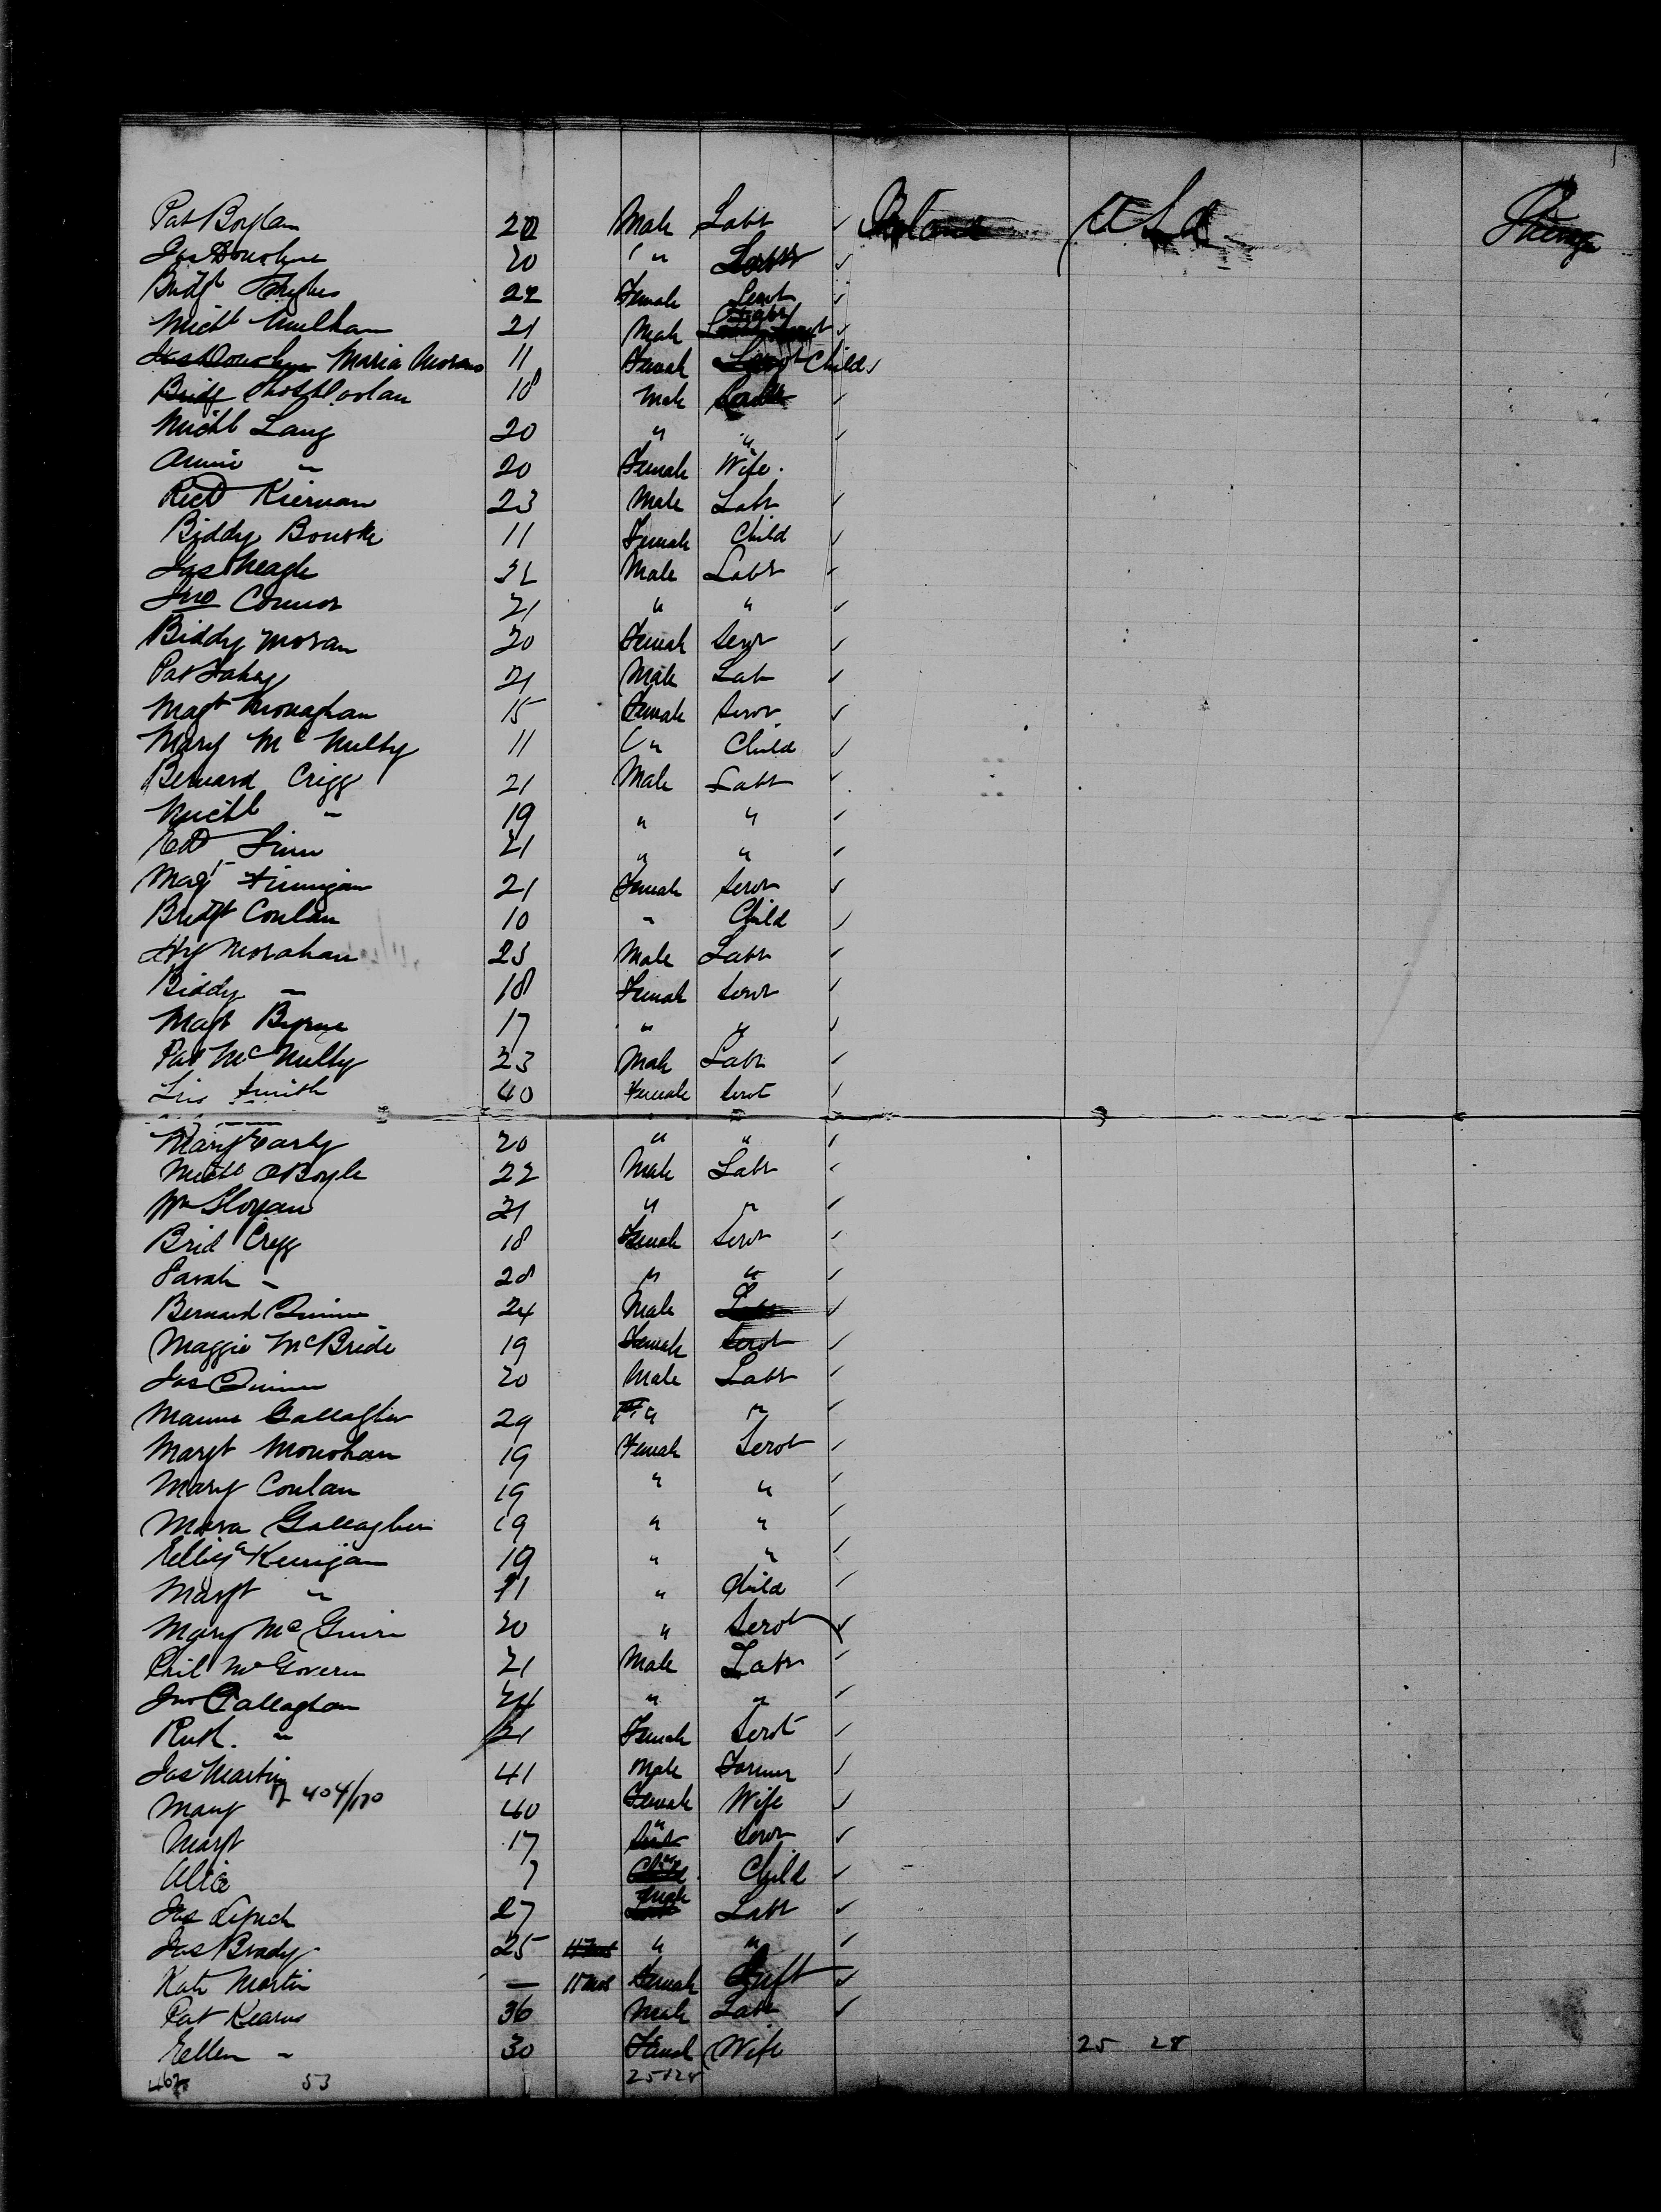 Pat Boylan 20 Male Labr ✓ Ireland U S A Steerage
Jas Donohue 20 " Labr ✓
Bridgt Hughes 22 Female Servt ✓
Michl Mulhan 21 Male Labr ✓
Jas Donohue Maria Moran 11 Female Servt Child ✓
Bridg Thos Doolan 18 Male ✓
Michl Lang 20 " " ✓
Annie " 20 Female Wife.
Richd Kiernan 23 Male Labr ✓
Biddy Bourke 11 Female Child ✓
Jas Neagle 32 Male Labr ✓
Jno Connor 21 " " ✓
Biddy Moran 20 Female Servt ✓
Pat Fahey 21 Male Lab ✓
Magt Monaghan 15 Female Servt ✓
Mary Mc Nulty 11 " Child ✓
Bernard Cregg 21 Male Labr ✓
Michl " 19 " " ✓
Ed Finn 21 " " ✓
Magt Finnigan 21 Female Servt ✓
Bridgt Conlan 10 " Child ✓
Hy Morahan 23 Male Labr ✓
Biddy " 18 Female Servt ✓
Magt Byrne 17 " " ✓
Pat McNulty 23 Male Labr ✓
Smith 40 Female Servt ✓
Mary Early 20 " " ✓
Michl O'Boyle 22 Male Labr ✓
Wm Sloyan 21 " " ✓
Brid Cregg 18 Female Servt ✓
Sarah " 20 " " ✓
Bernard Quinn 24 Male Labr ✓
Maggie McBride 19 Female Servt ✓
Jas Quinn 20 Male Labr ✓
Gallagher 29 " " ✓
Margt Monohan 19 Female Servt ✓
Mary Conlan 19 " " ✓
Gallagher 19 " " ✓
Kerrigan 19 " " ✓
Margt " 11 " Child ✓
Mary McGuire 20 " Servt ✓
Phil McGovern 21 Male Labr ✓
Jno Callaghan 24 " " ✓
" 21 Female Servt ✓
Jas Martin 41 Male Farmer ✓
Mary " 404/170 40 Female Wife ✓
Margt 17 " Servt ✓
Alice 7 " Child ✓
Jas Lynch 27 Male Labr ✓
Jas Brady 25 " " ✓
Kate Martin — 11 mos Female Inft ✓
Pat Kearns 36 Male Labr ✓
Ellen " 30 Femal Wife 25 28
462 53 25 28